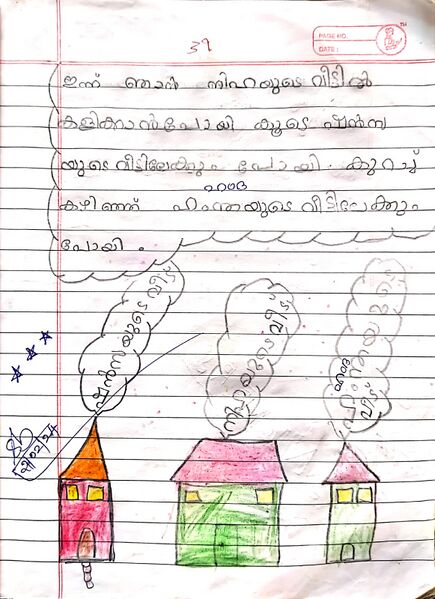 37
PAGE NO.:
DATE:
ഇന്ന് ഞാൻ നിഹയുടെ വീട്ടിൽ
കളിക്കാൻപോയി കൂടെ ഷൻസ
യുടെ വീട്ടിലേക്കും പോയി. കുറച്ച്
കഴിഞ്ഞ് ഹംന്തയുടെ വീട്ടിലേക്കും
പോയി.
ഷൻസയുടെ വീട്
നിഹയുടെ വീട്
വീട്